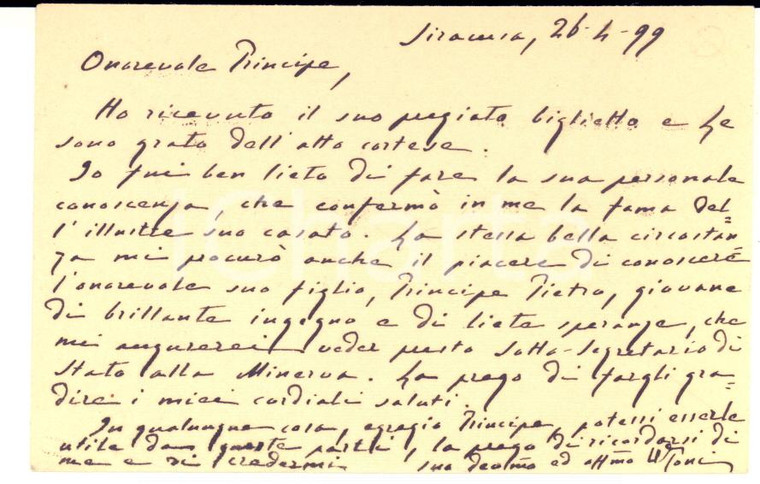 Siracusa, 26-4-99
Onorevole Principe,
Ho ricevuto il suo pregiato biglietto e Le
sono grato dell'atto cortese.
Io fui ben lieto di fare la sua personale
conoscenza, che confermò in me la fama del=
l'illustre suo casato. La stessa bella circostan=
za mi procurò anche il piacere di conoscere
l'onorevole suo figlio, Principe Pietro, giovane
di brillante ingegno e di liete speranze, che
mi augurerei veder presto Sotto-Segretario di
Stato alla Minerva. La prego di fargli gra=
dire i miei cordiali saluti.
In qualunque cosa, egregio Principe, potessi esserle
utile da queste parti, la prego di ricordarsi di
me e di credermi suo devmo ed affmo